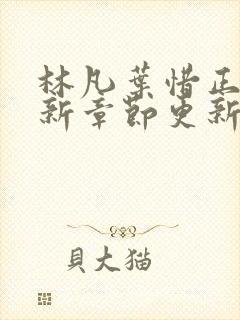 林凡葉惜正
新章節更新
貝大猫